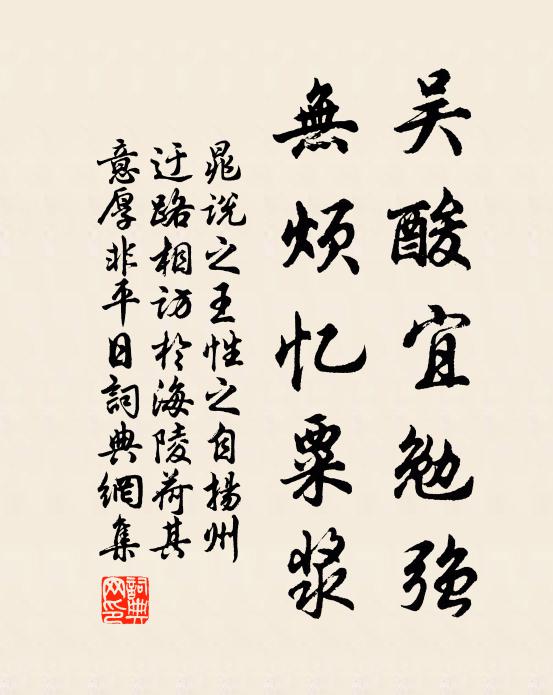 吴酸宜勉强
無烦忆粟浆
晁说之王性之自揚州
迂路相访於海陵荷其
意厚非平日詞典網集
詞典網印